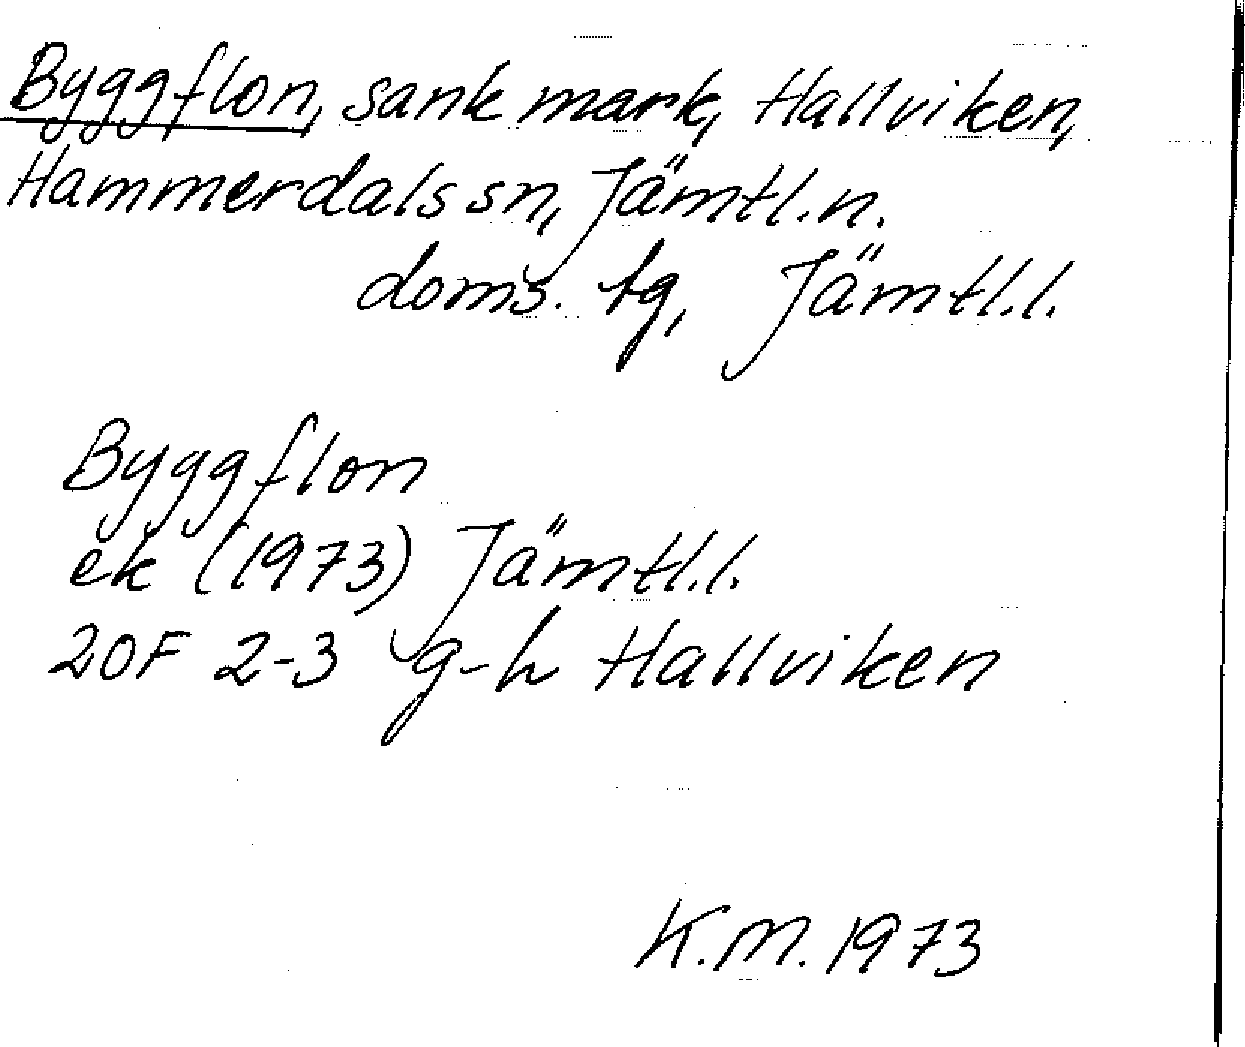 Byggflon, sank mark, Hallviken,
Hammerdals sn, Jämtl.n.
doms. tg, Jämtl.l.
Byggflon
ek (1973) Jämtl.l.
20F 2-3 g-h Hallviken
K.M. 1973